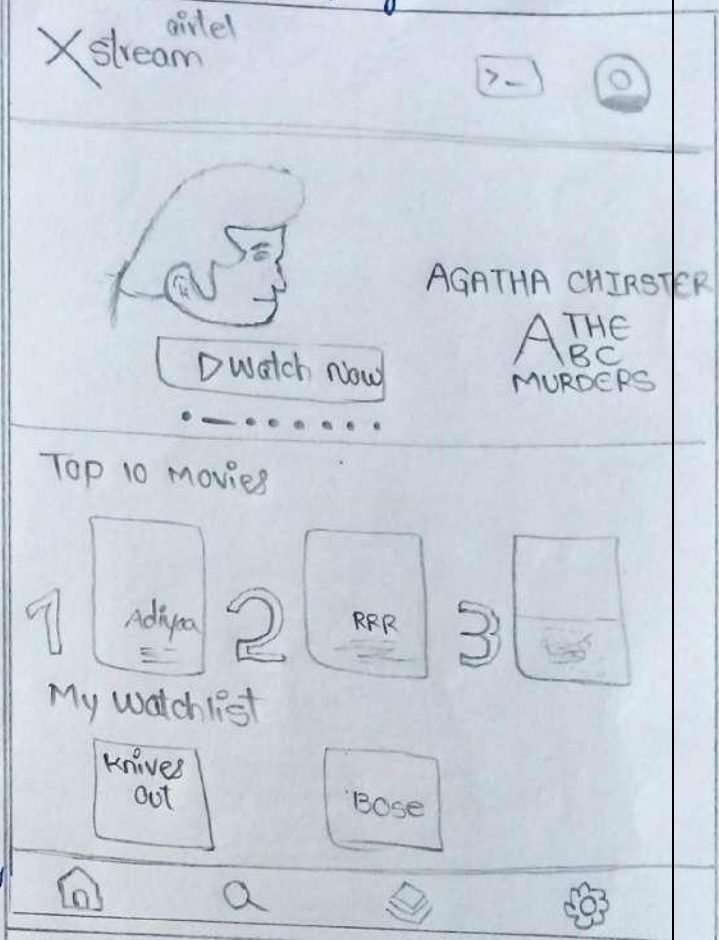 airtel
Xstream
>_
AGATHA CHIRSTER
A THE
BC
MURDERS
▷ Watch Now
Top 10 Movies
1
2 RRR
3
My Watchlist
Knives
Out
Bose